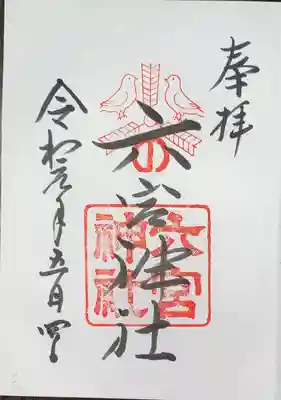 奉拝
六宮神社
六宮
神社
令和元年五月四日